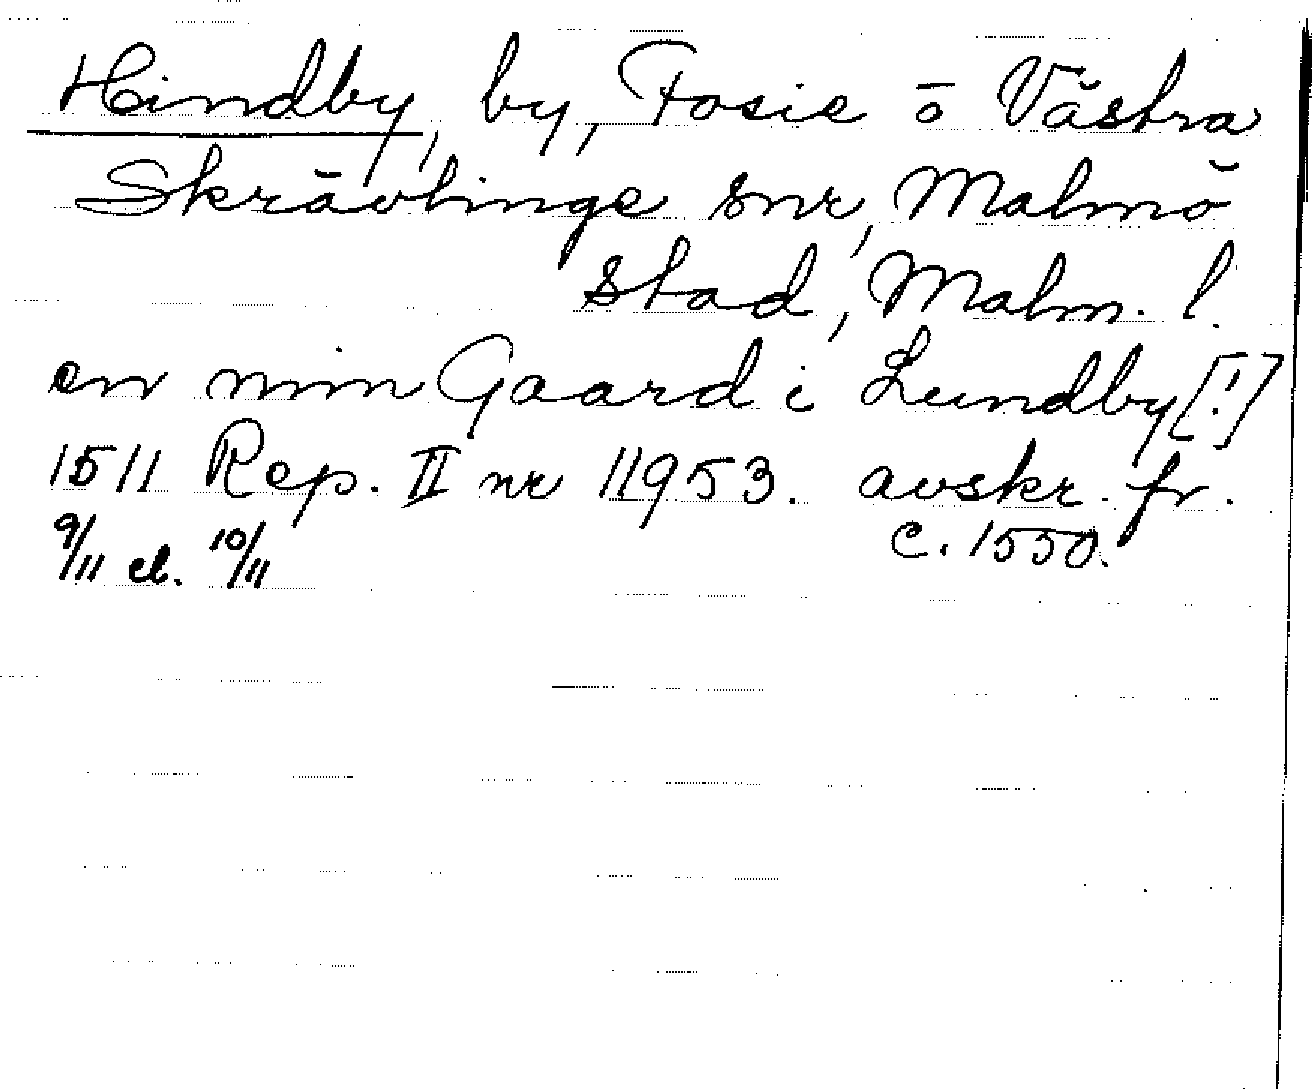 Hindby, by, Fosie o Västra
Skrävlinge snr, Malmö
stad, Malm. l.
en min Gaard i Lundby [!]
1511 Rep. II nr 11953. avskr. fr.
9/11 el. 10/11 c. 1550.